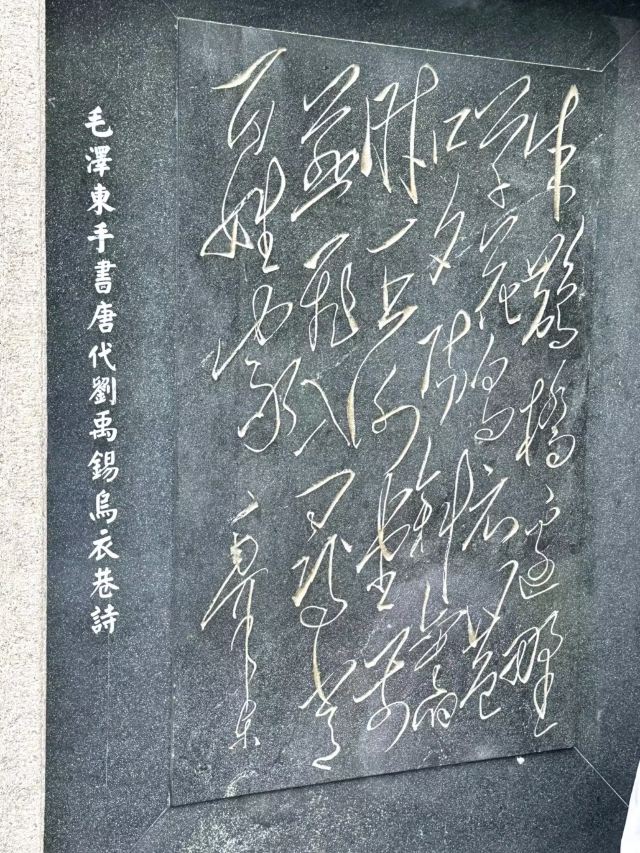 朱鵲橋邊野
草花烏衣巷
口夕陽斜舊
時王謝堂前
燕飛入尋常
百姓家 毛澤東
毛澤東手書唐代劉禹錫烏衣巷詩